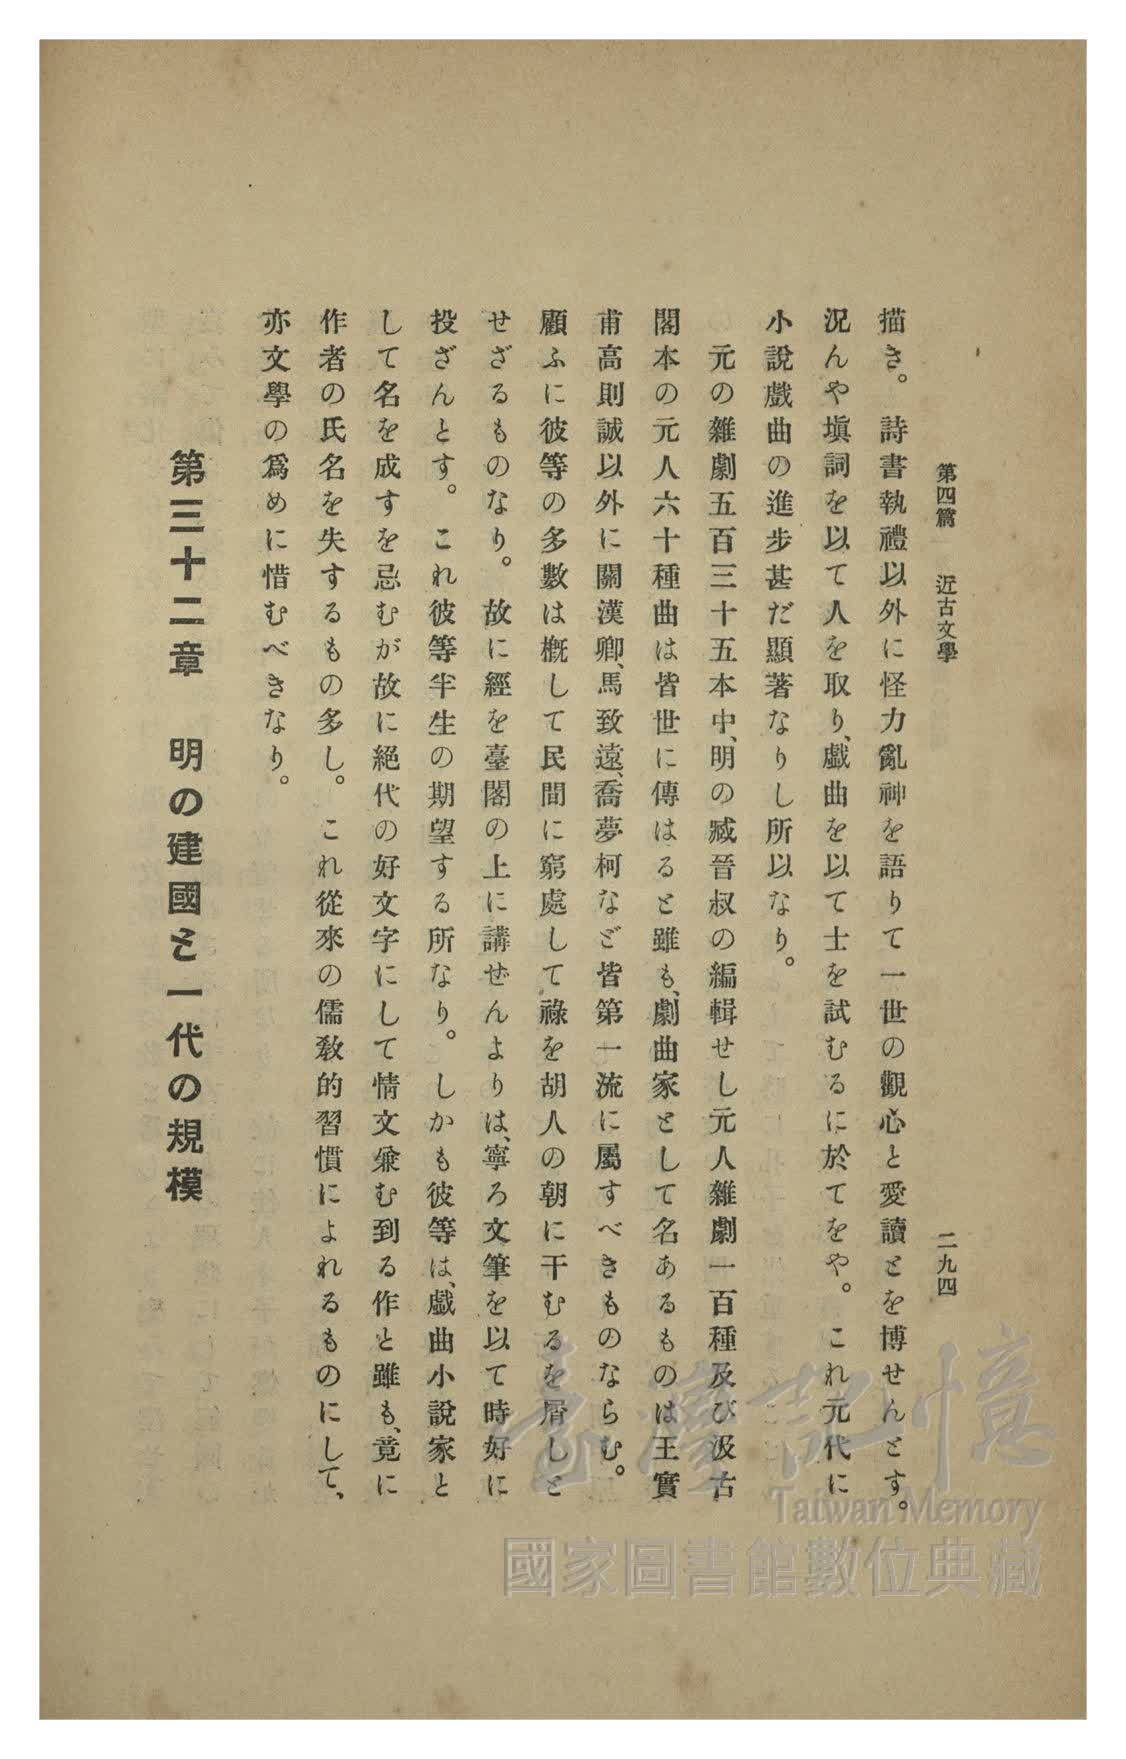 第四篇　近古文學
二九四
描き。詩書執禮以外に怪力亂神を語りて一世の觀心と愛讀とを博せんとす。
況んや塡詞を以て人を取り、戲曲を以て士を試むるに於てをや。これ元代に
小說戲曲の進步甚だ顯著なりし所以なり。
元の雜劇五百三十五本中、明の臧晉叔の編輯せし元人雜劇一百種及び汲古
閣本の元人六十種曲は皆世に傳はると雖も、劇曲家として名あるものは王實
甫高則誠以外に關漢卿、馬致遠、喬夢柯など皆第一流に屬すべきものならむ。
顧ふに彼等の多數は槪して民間に窮處して祿を胡人の朝に干むるを屑しと
せざるものなり。故に經を臺閣の上に講ぜんよりは、寧ろ文筆を以て時好に
投ざんとす。これ彼等半生の期望する所なり。しかも彼等は、戲曲小說家と
して名を成すを忌むが故に絕代の好文字にして情文兼む到る作と雖も、竟に
作者の氏名を失するもの多し。これ從來の儒敎的習慣によれるものにして、
亦文學の爲めに惜むべきなり。
第三十二章　明の建國と一代の規模
臺灣記憶
Taiwan Memory
國家圖書館數位典藏